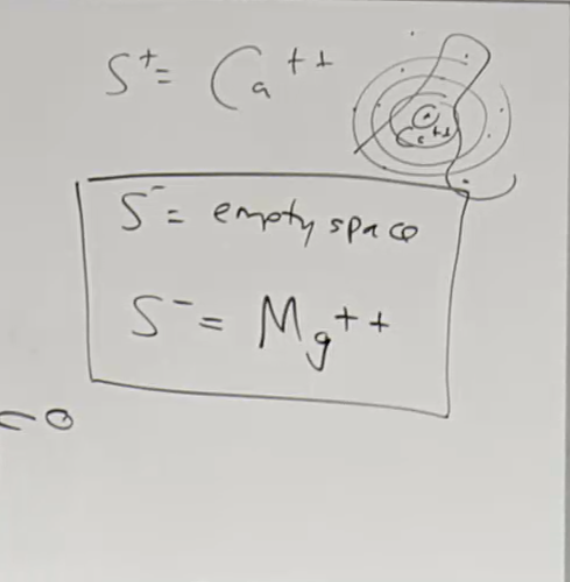 S⁺= Ca⁺⁺
Ca⁺⁺
S⁻= empty space
S⁻= Mg⁺⁺